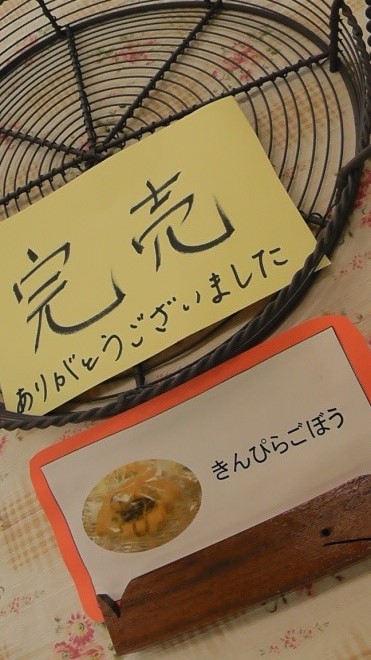 完売
ありがとうございました
きんぴらごぼう